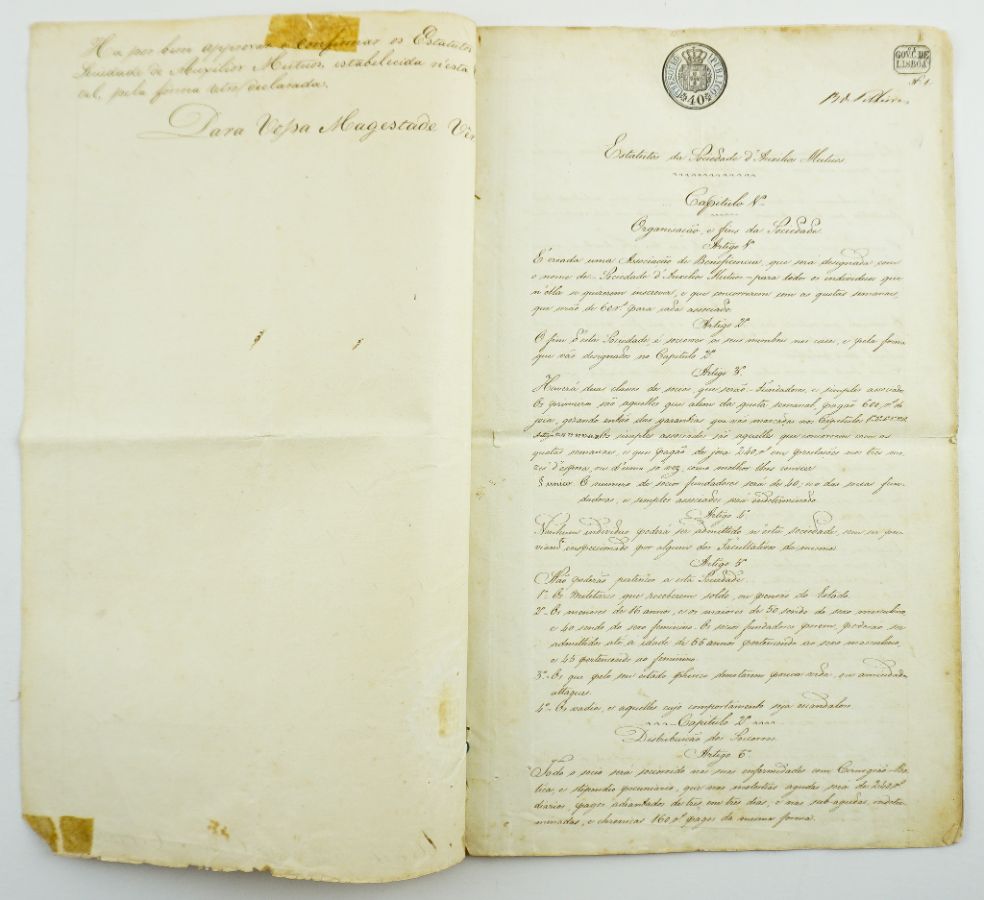 Ha por bem approvar e confirmar os Estatutos
Sociedade de Auxilios Mutuos, estabelecida n'esta
cal, pela forma n'elles declarada.
Para Vossa Magestade Ver
PUBLICO
40
GOV. C. DE
LISBOA
Nº 1
Estatutos da Sociedade d'Auxilios Mutuos
Capitulo 1º
Organisação, e fins da Sociedade
Artigo 1º
É creada uma Associação de Beneficencia, que sera designada com
o nome de - Sociedade d'Auxilios Mutuos - para todos os individuos que
n'ella se quizerem inscrever, e que concorrerem com as quotas semanaes,
que serão de 60 rs para cada associado.
Artigo 2º
O fim d'esta Sociedade, é soccorrer a seus membros nos casos, e pela forma
que vão designados no Capitulo 2º
Artigo 3º
Haverá duas classes de socios que serão - Fundadores, e simples associados
Os primeiros são aquelles que alem da quota semanal, pagão 600 rs de
joia, gozando então das garantias que vão marcadas nos Capitulos
Os simples associados são aquelles que concorrem com as
quotas semanaes, e que pagão de joia 240 rs em prestações nos tres me-
zes d'espera, ou d'uma só vez, como melhor lhes convier
§ unico. O numero de socios fundadores será de 40; e o das socias fun-
dadoras, e simples associados será indeterminado.
Artigo 4º
Nenhum individuo poderá ser admittido n'esta sociedade, sem ser pre-
viamte inspeccionado por algum dos Facultativos da mesma
Artigo 5º
Não poderão pertencer a esta Sociedade
1º - Os Militares que receberem soldo, ou pensão do Estado
2º - Os menores de 16 annos, e os maiores de 50 sendo do sexo masculino,
e 40 sendo do sexo feminino. Os socios fundadores porem, poderão ser
admittidos até a idade de 55 annos pertencendo ao sexo masculino,
e 45 pertencendo ao feminino.
3º - Os que pelo seu estado physico denotarem pouca vida, ou amiudados
attaques.
4º - Os vadios, e aquelles cujo comportamento seja escandaloso
Capitulo 2º
Distribuição dos Soccorros
Artigo 6º
Todo o socio será soccorrido nas suas enfermidades com Cirurgião, Bo-
tica, e stipendio pecuniario, que nas molestias agudas, sera de 240 rs
diarios, pagos adiantados de tres em tres dias; e nas sub-agudas, indeter-
minadas, e chronicas 160 rs pagos da mesma forma.